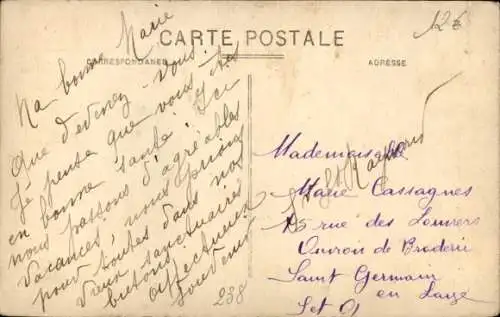 CARTE POSTALE
CORRESPONDANCE
ADRESSE
12€
Ma bonne Marie
Que devenez-vous
Je pense que vous êtes
en bonne santé. Ici
nous passons d'agréables
vacances, nous prions
pour toutes dans nos
vieux sanctuaires
bretons.
Affectueux
souvenir
238
Mademoiselle
Marie Cassagnes
15 rue des Louviers
de Broderie
Saint Germain
en Laye
Set O